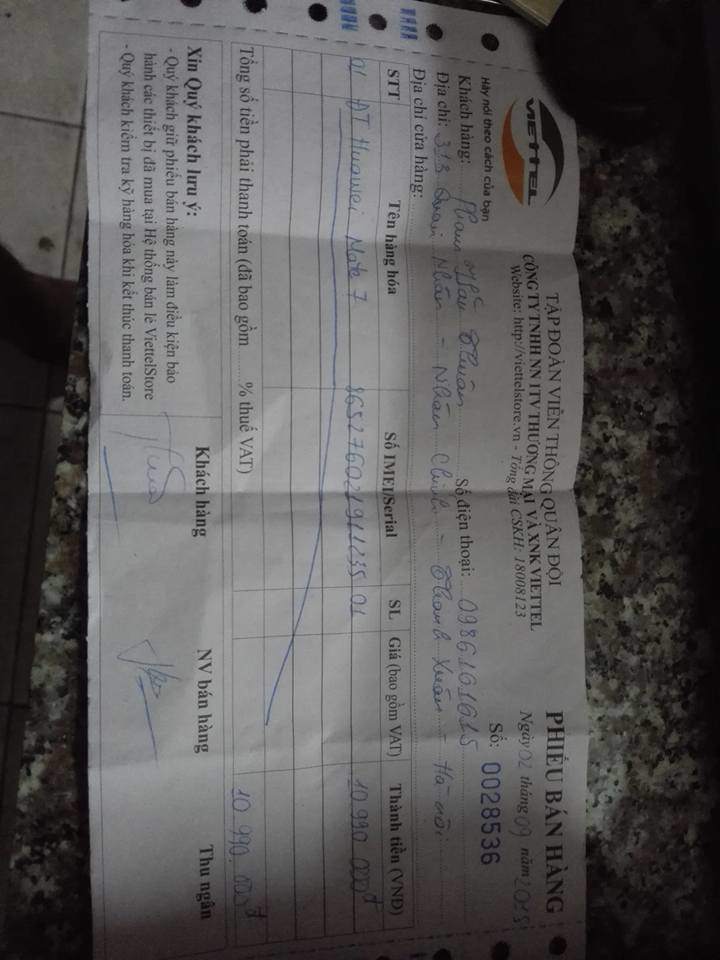 VIETTEL
Hãy nói theo cách của bạn
TẬP ĐOÀN VIỄN THÔNG QUÂN ĐỘI
CÔNG TY TNHH NN 1TV THƯƠNG MẠI VÀ XNK VIETTEL
Website: http://viettelstore.vn - Tổng đài CSKH: 18008123
PHIẾU BÁN HÀNG
Ngày 02 tháng 09 năm 2015
Số: 0028536
Khách hàng: Phạm Thuận Số điện thoại: 0986161615
Địa chỉ: 313 Quan Nhân - Nhân Chính - Thanh Xuân - Hà Nội
Địa chỉ cửa hàng:
STT Tên hàng hóa Số IMEI/Serial SL Giá (bao gồm VAT) Thành tiền (VNĐ)
01 ĐT Huawei Mate 7 01 10 990 000đ
Tổng số tiền phải thanh toán (đã bao gồm % thuế VAT) 10 990 000đ
Xin Quý khách lưu ý:
- Quý khách giữ phiếu bán hàng này làm điều kiện bảo
hành các thiết bị đã mua tại Hệ thống bán lẻ ViettelStore
- Quý khách kiểm tra kỹ hàng hóa khi kết thúc thanh toán.
Khách hàng NV bán hàng Thu ngân